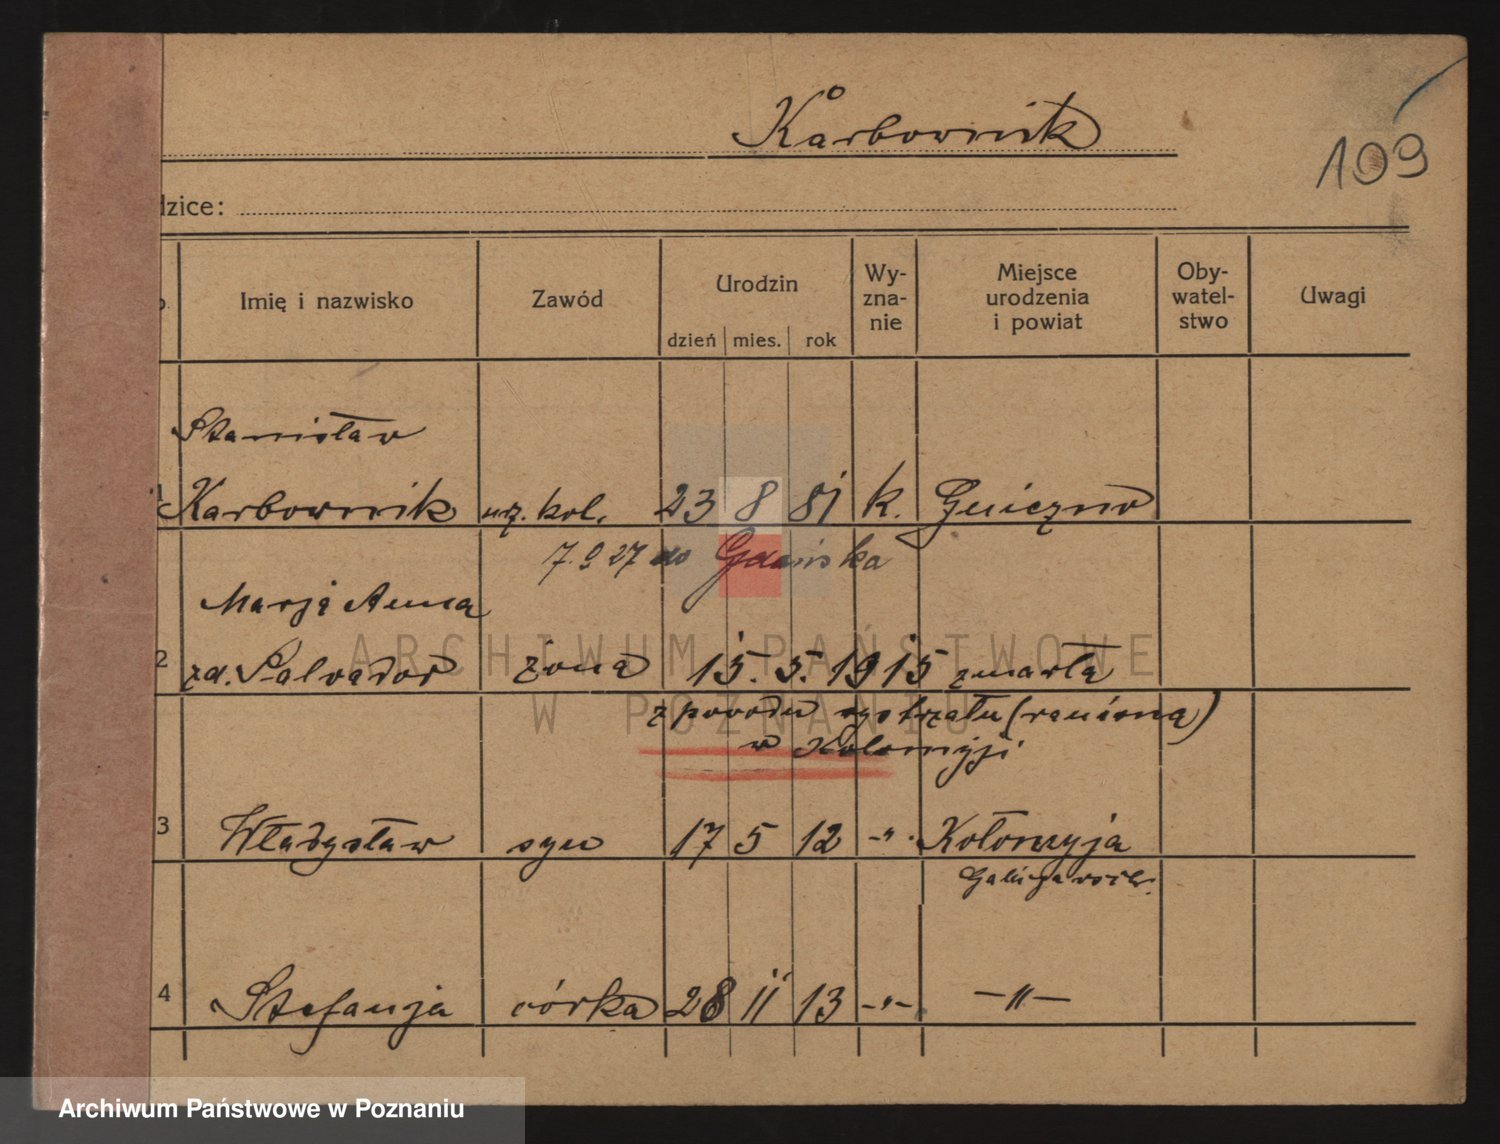 Karbownik
109
dzice:
Imię i nazwisko
Zawód
Urodzin
dzień mies. rok
Wy-
zna-
nie
Miejsce
urodzenia
i powiat
Oby-
watel-
stwo
Uwagi
Stanisław
1 Karbownik urz. kol. 23 8 81 k. Gniezno
7.9 27 do Gdańska
Marja Anna
2 zd. Salvador żona 15. 5. 1915 zmarła
z powodu wystrzału (raniona)
w Kołomyji
3 Władysław syn 17 5 12 -"- Kołomyja
Galicja wsch.
4 Stefanja córka 28 11 13 -"- -"-
ARCHIWUM PAŃSTWOWE
W POZNANIU
Archiwum Państwowe w Poznaniu